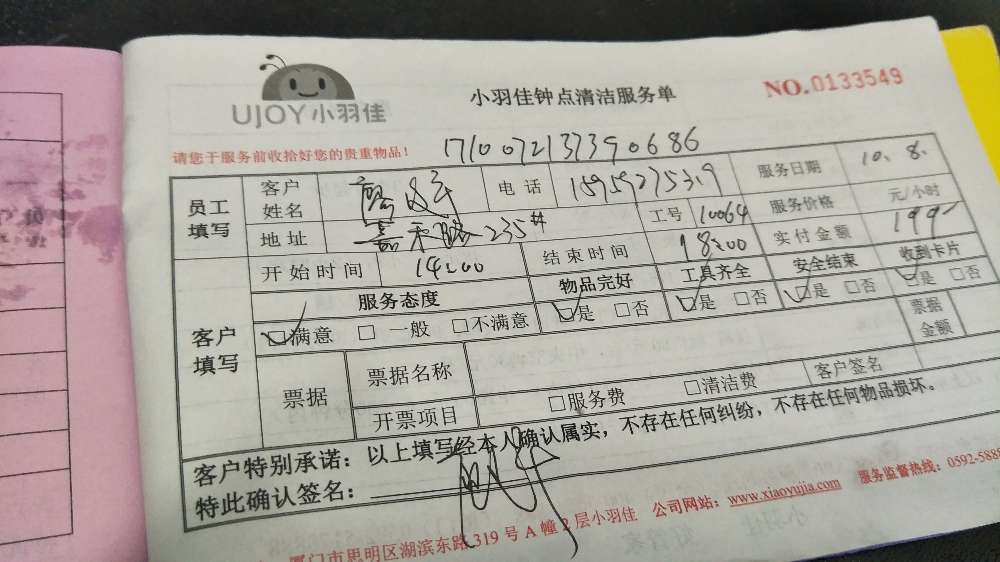 UJOY小羽佳
小羽佳钟点清洁服务单
NO.0133549
请您于服务前收拾好您的贵重物品!
1710072137390686
员工填写 客户姓名 电话 服务日期 10.8.
地址 235# 工号 10064 服务价格 元/小时
开始时间 14:00 结束时间 18:00 实付金额 199
客户填写 服务态度 物品完好 工具齐全 安全结束 收到卡片
满意 一般 不满意 是 否 是 否 是 否 是 否
票据 票据名称 票据金额
开票项目 服务费 清洁费 客户签名
客户特别承诺:以上填写经本人确认属实,不存在任何纠纷,不存在任何物品损坏。
特此确认签名:
厦门市思明区湖滨东路319号A幢2层小羽佳 公司网站:www.xiaoyujia.com 服务监督热线:0592-5888